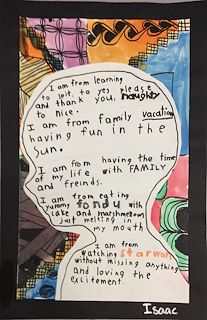 I am from learning
to spit, to yes please
and thank you, naughty
to nice.
I am from family vacation
having fun in the
sun.
I am from having the time
of my life with FAMILY
and freinds.
I am from eating
yummy fondu with
cake and marshmellows
just melting in
my mouth
I am from
watching starwars
without missing anything
and loving the
excitement.
Isaac